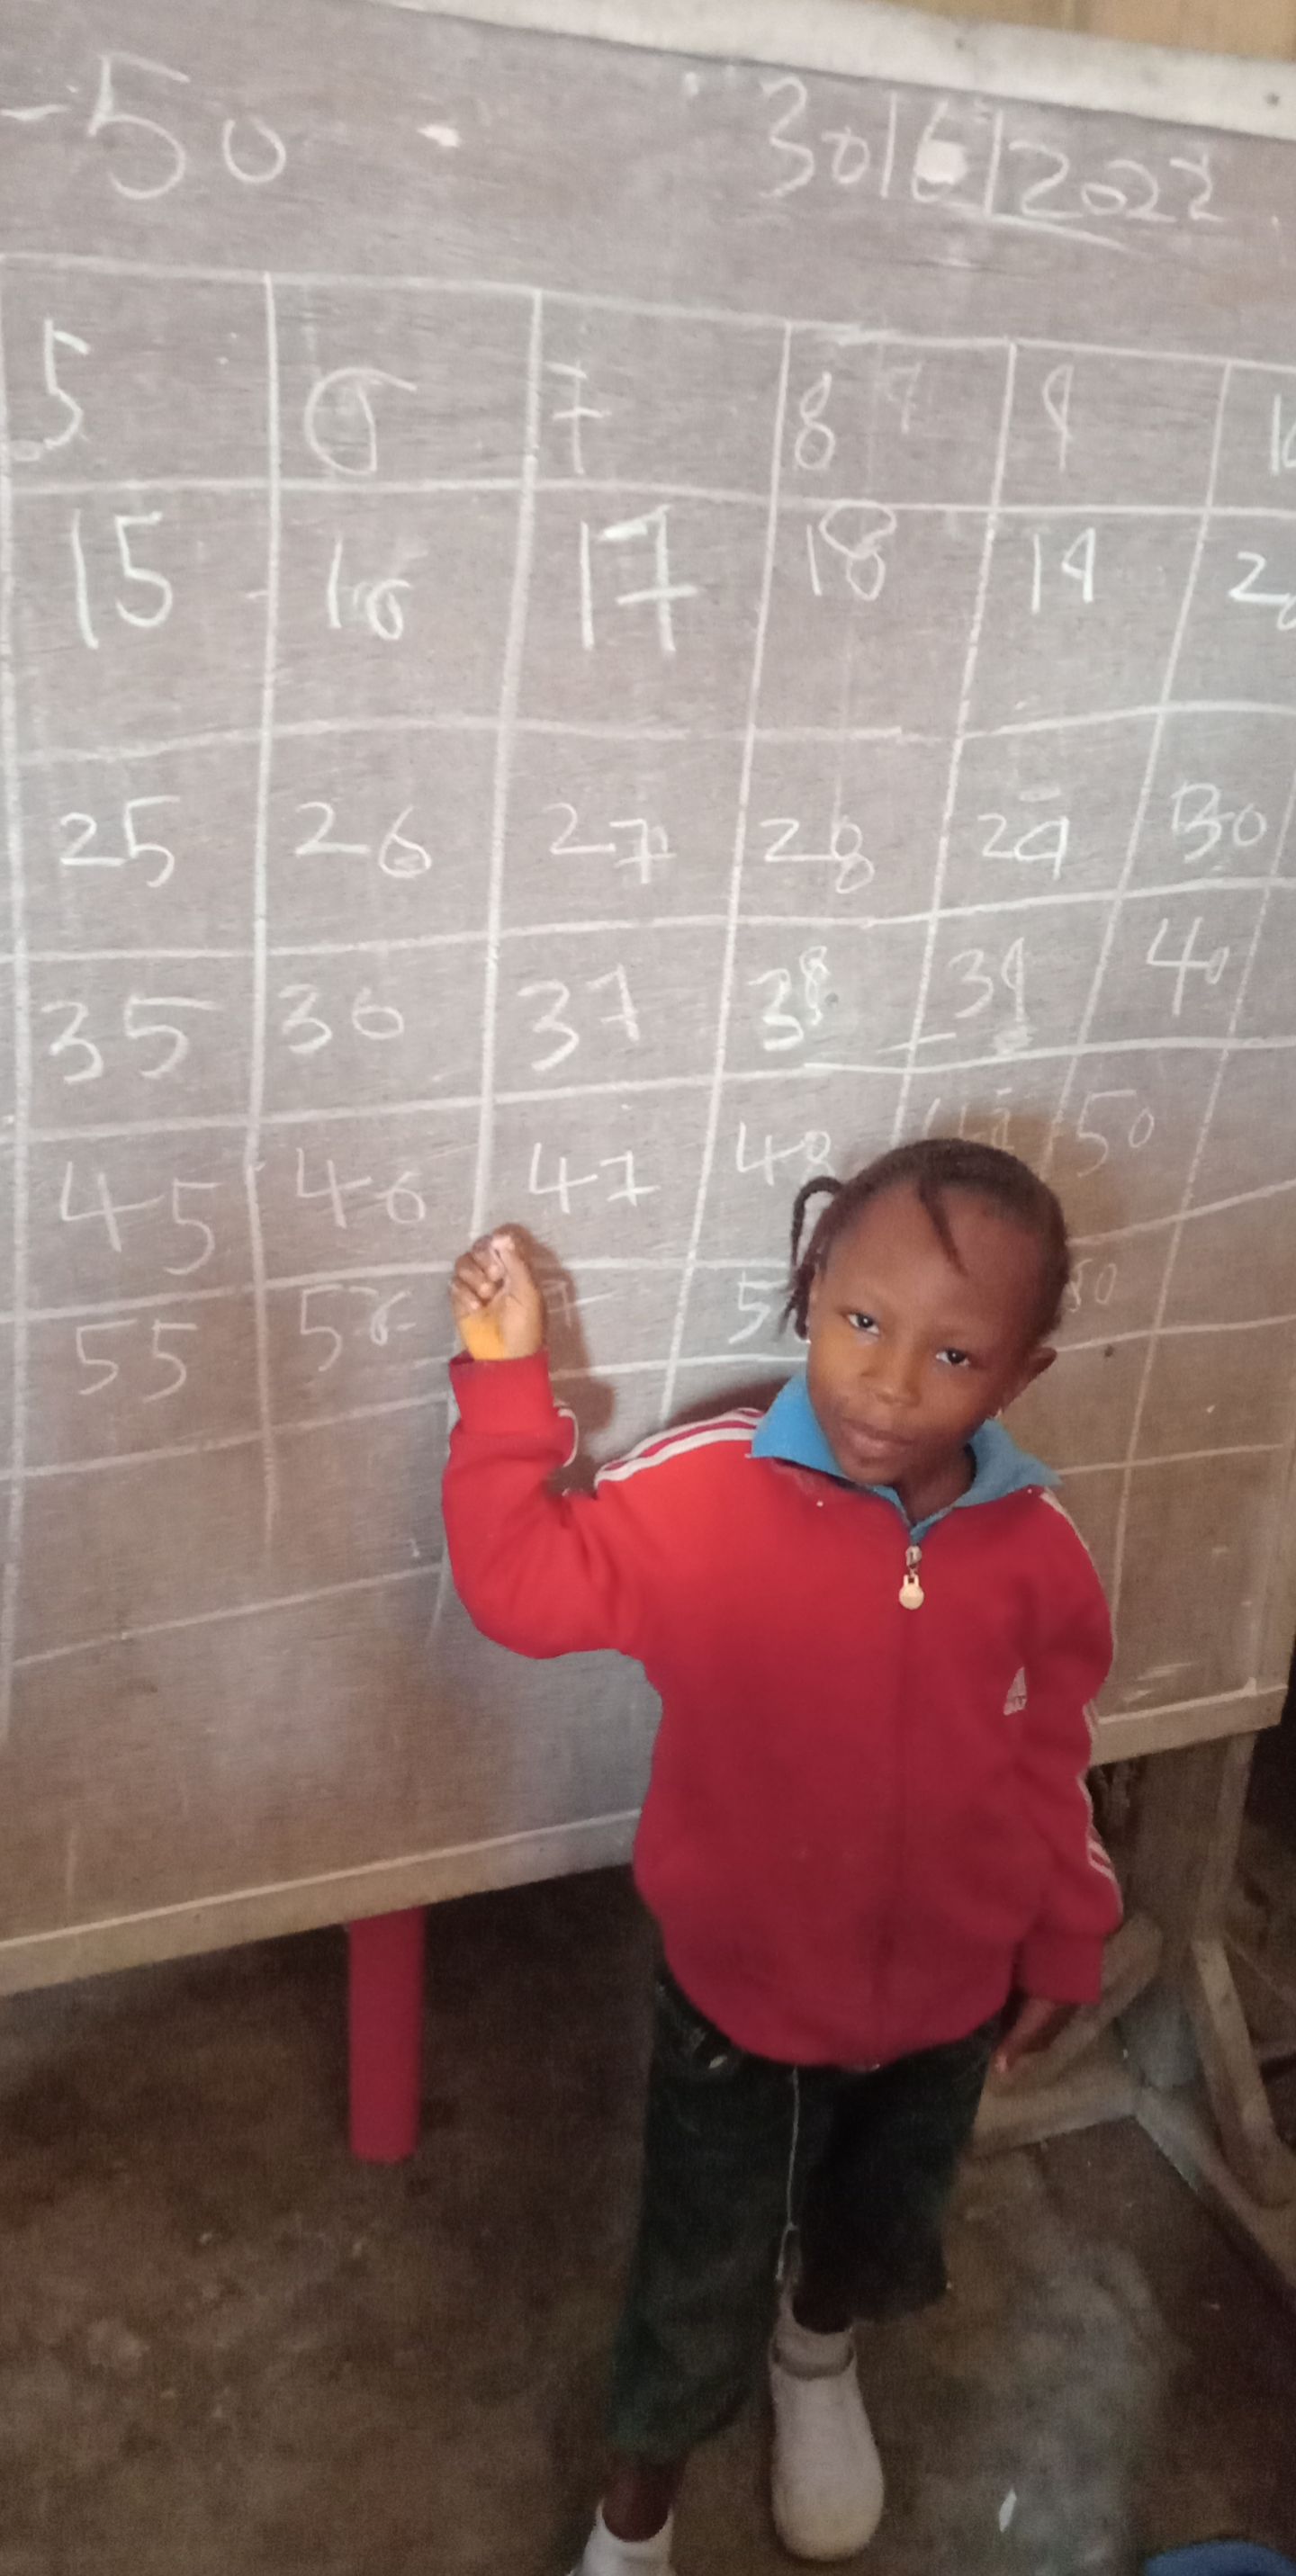 -50 30/6/2022
5 6 7 8 9 10
15 16 17 18 19 20
25 26 27 28 29 30
35 36 37 38 39 40
45 46 47 48 50
55 56